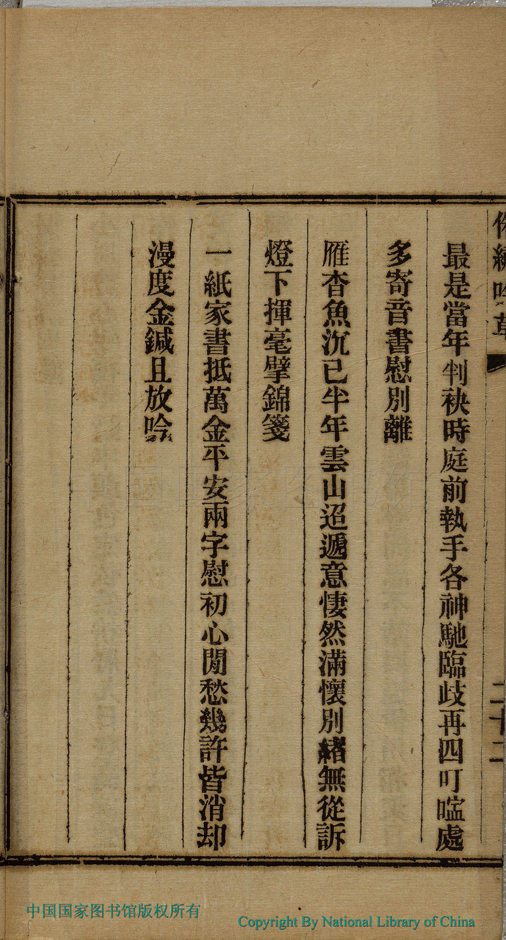 繡吟草
二十二
最是當年判袂時庭前執手各神馳臨歧再四叮嚀處
多寄音書慰別離
雁杳魚沉已半年雲山迢遞意悽然滿懷別緒無從訴
燈下揮毫擘錦箋
一紙家書抵萬金平安兩字慰初心閒愁幾許皆消却
漫度金鍼且放吟
中国国家图书馆版权所有
Copyright By National Library of China